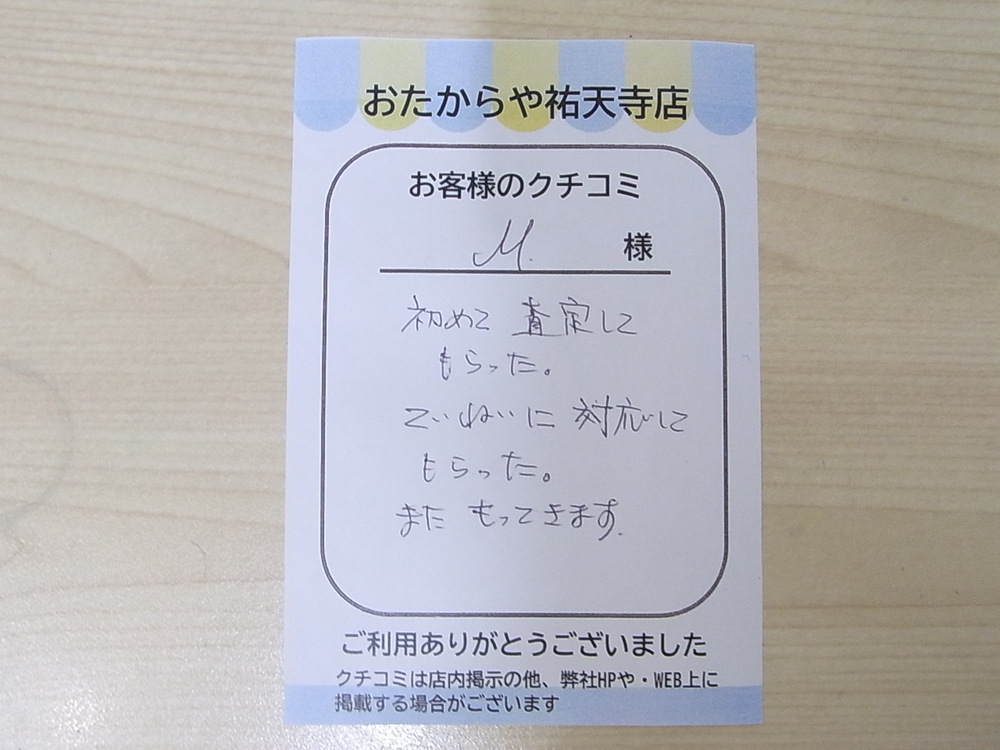 おたからや祐天寺店
お客様のクチコミ
M. 様
初めて 査定して
もらった。
ていねいに 対応して
もらった。
また もってきます.
ご利用ありがとうございました
クチコミは店内掲示の他、弊社HPや・WEB上に
掲載する場合がございます